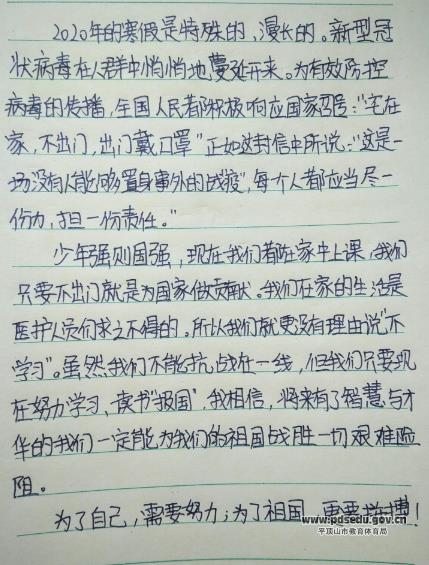 2020年的寒假是特殊的,漫长的。新型冠
状病毒在人群中悄悄地蔓延开来。为有效防控
病毒的传播,全国人民都积极响应国家召唤:"宅在
家,不出门,出门戴口罩"正如这封信中所说:"这是一
场没有人能够置身事外的战疫",每个人都应当尽一
份力,担一份责任。"
少年强则国强,现在我们都在家中上课,我们
只要不出门就是为国家做贡献。我们在家的生活是
医护人员们求之不得的。所以我们就更没有理由说"不
学习"。虽然我们不能抗战在一线,但我们只要现
在努力学习、读书"报国",我相信,将来有了智慧与才
华的我们一定能为我们的祖国战胜一切艰难险
阻。
为了自己,需要努力;为了祖国,更要拼搏!
www.pdsedu.gov.cn
平顶山市教育体育局